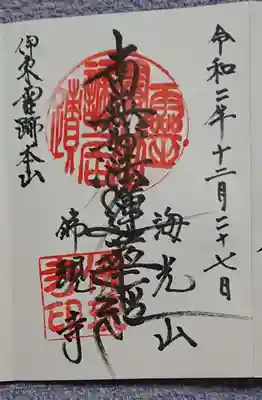 令和二年十二月二十七日
海光山
佛現寺
南無妙法蓮華経
伊東霊跡本山